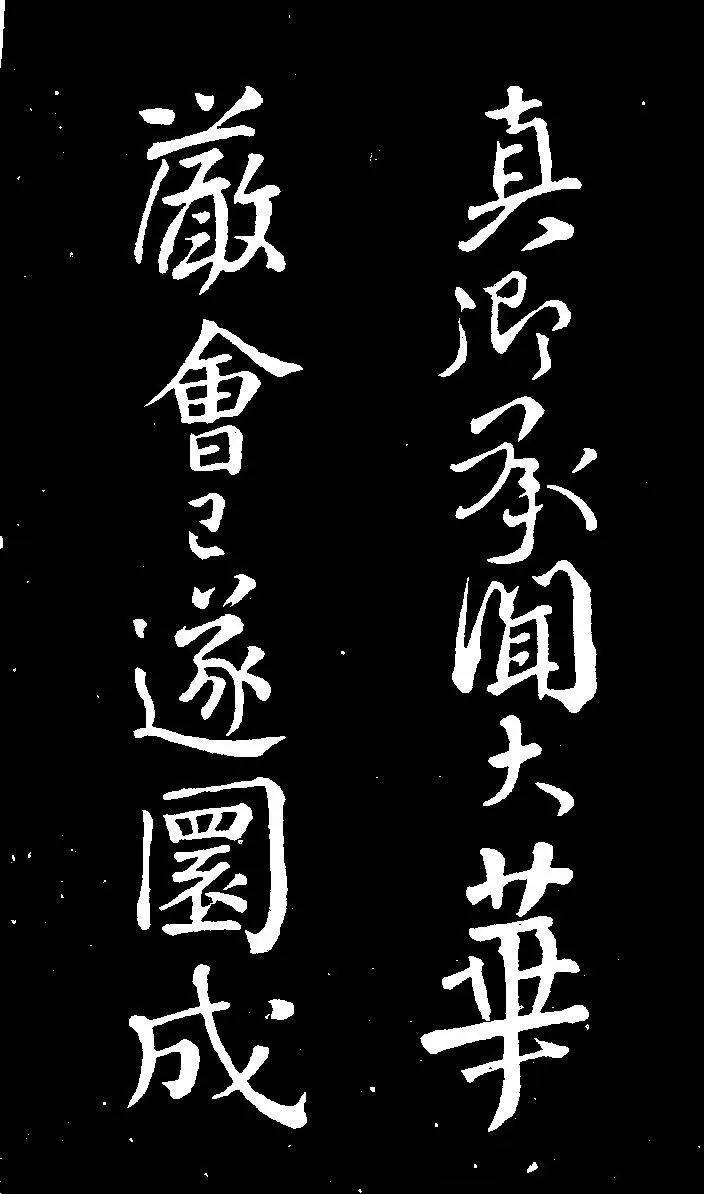 真卿承聞大華
嚴會已遂圜成